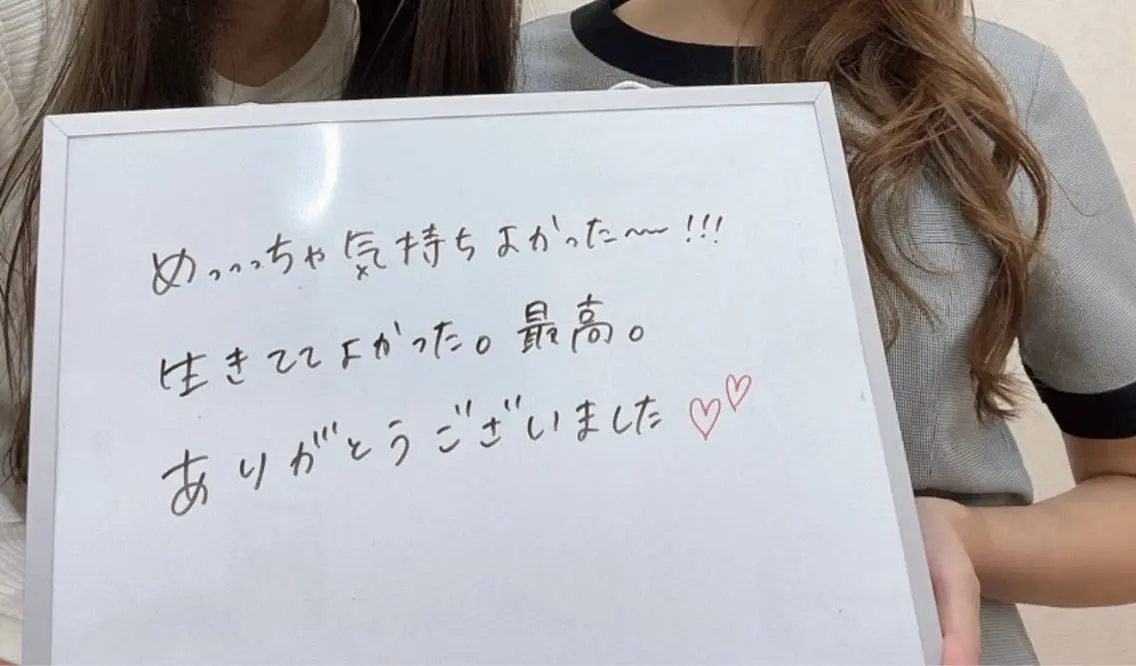 めっっっちゃ気持ちよかった〜!!!
生きててよかった。最高。
ありがとうございました♡♡